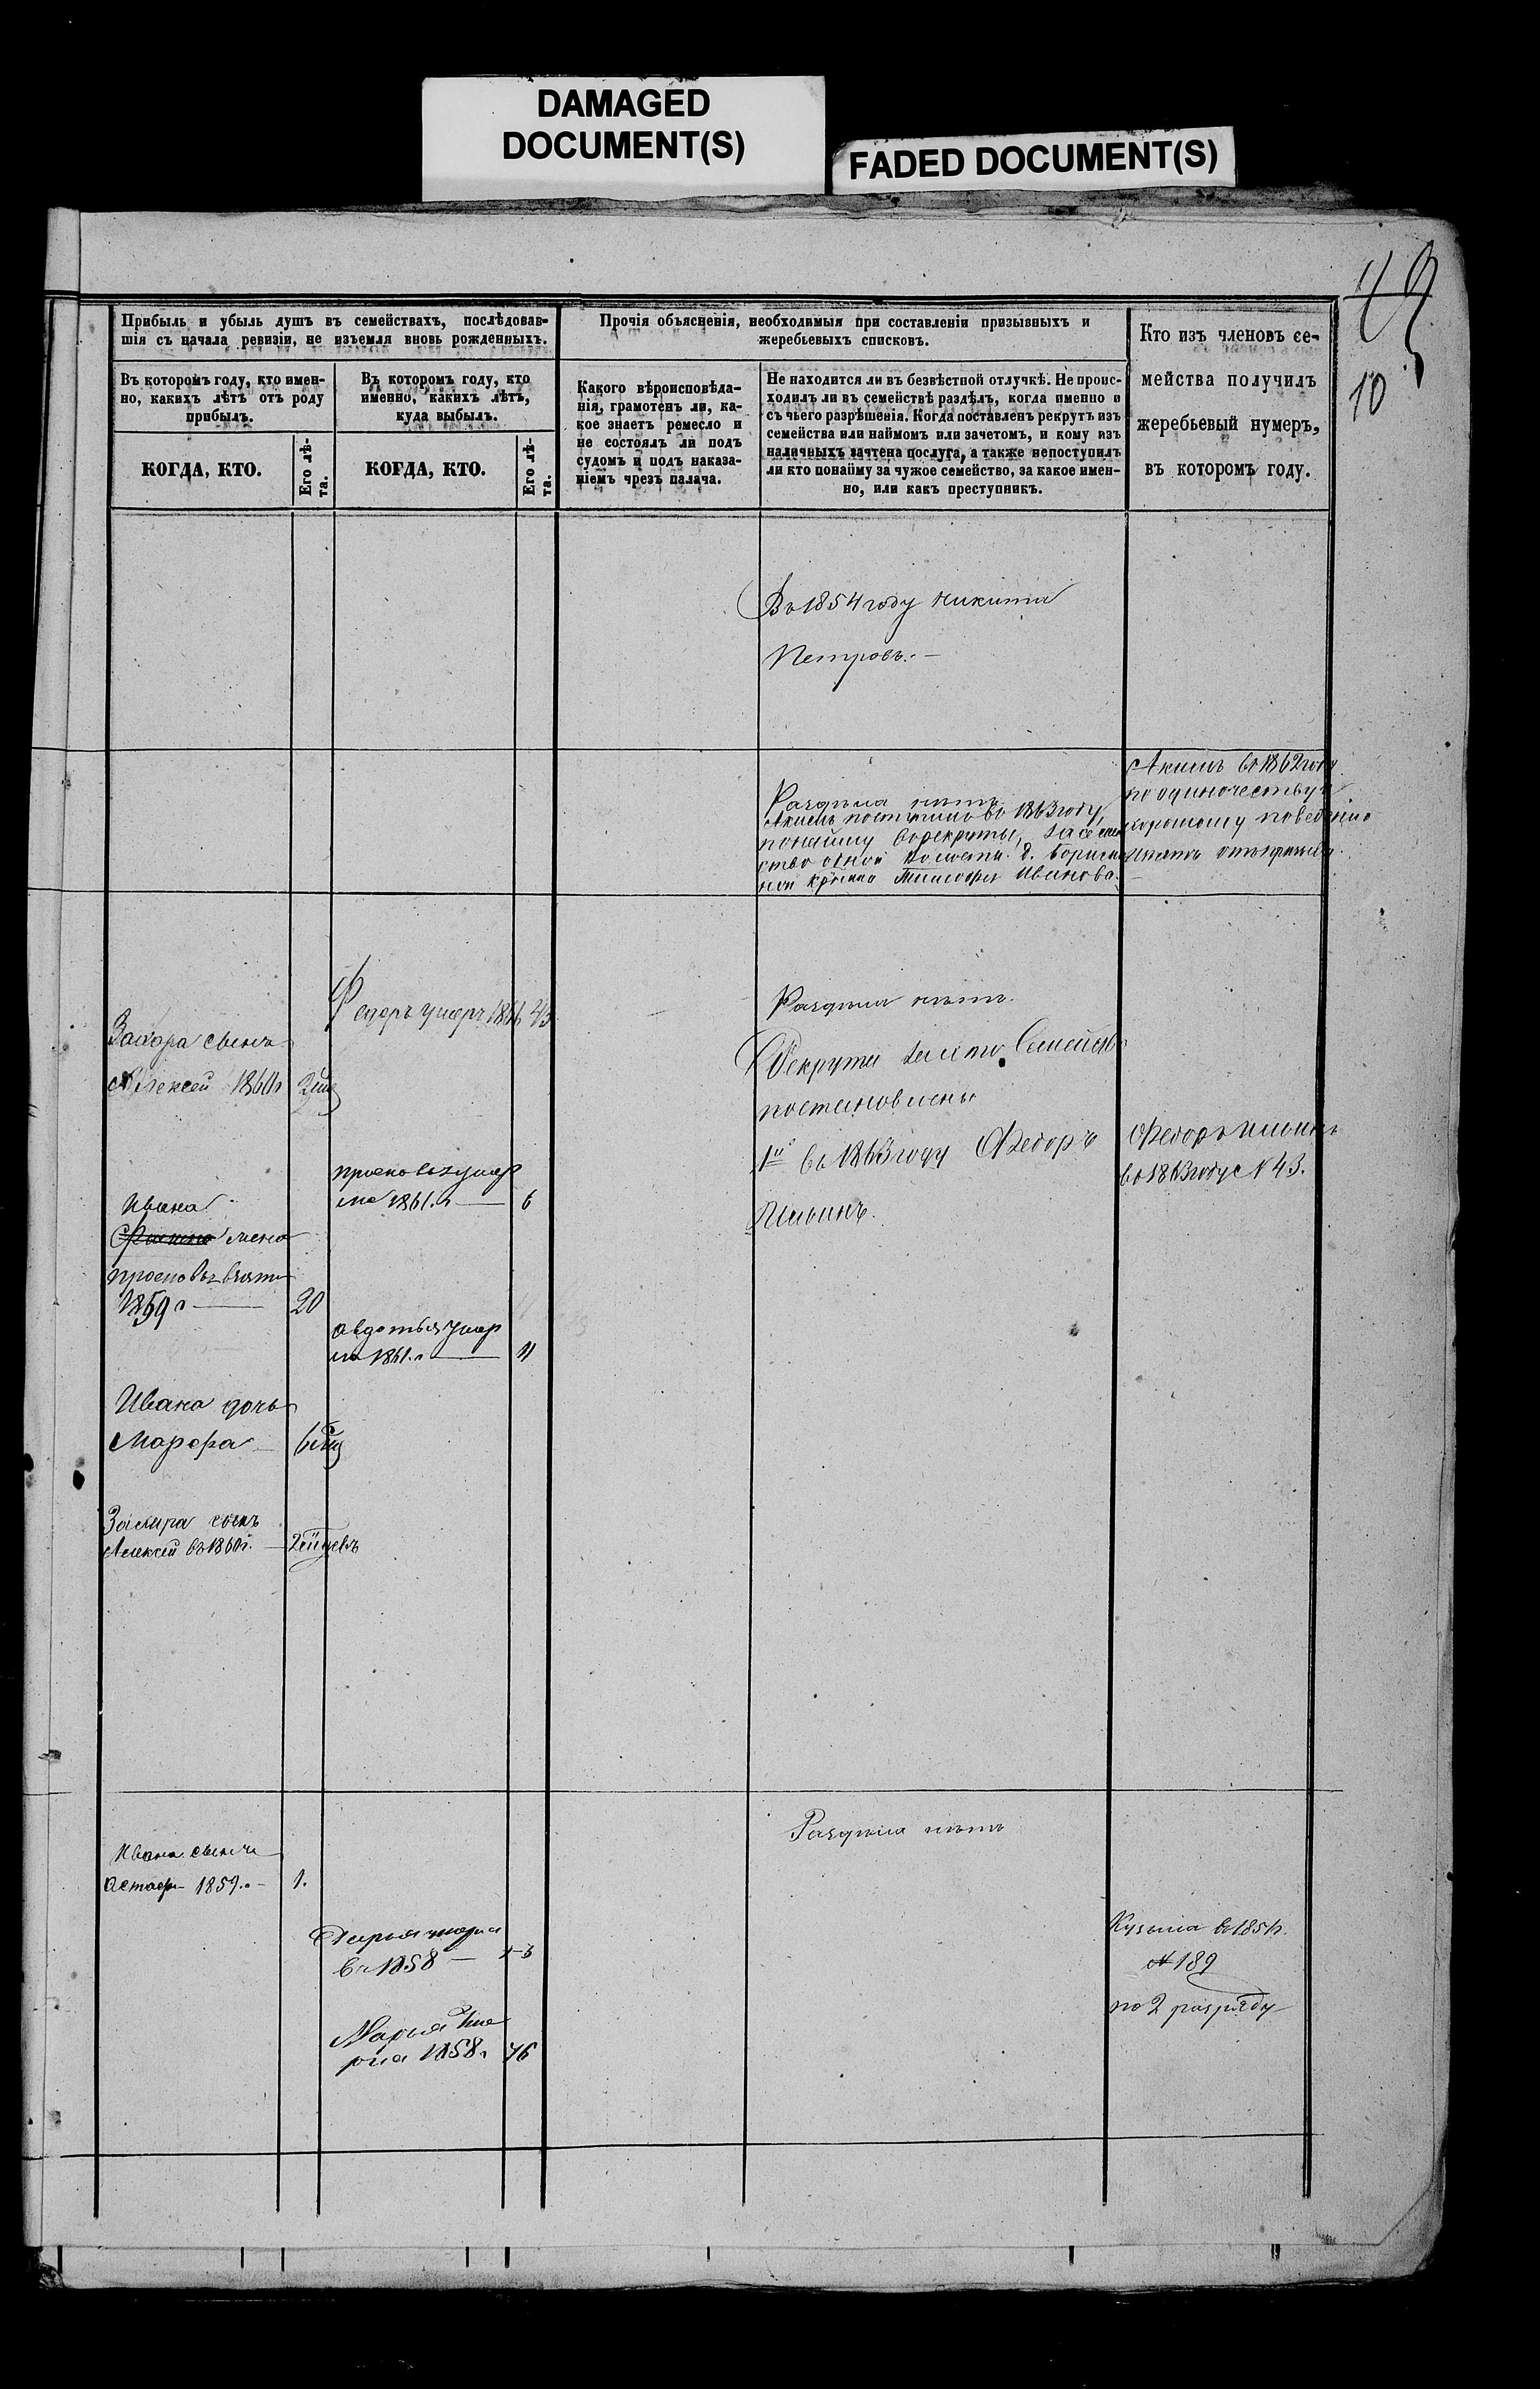 DAMAGED
DOCUMENT(S)
FADED DOCUMENT(S)
10
Прибыль и убыль душъ въ семействахъ, послѣдовав-
шія съ начала ревизіи, не изъемля вновь рожденныхъ.
Въ которомъ году, кто имен-
но, какихъ лѣтъ отъ роду
прибылъ.
КОГДА, КТО.
Его лѣ-
та.
Въ которомъ году, кто
именно, какихъ лѣтъ,
куда выбылъ.
КОГДА, КТО.
Его лѣ-
та.
Прочія объясненія, необходимыя при составленіи призывныхъ и
жеребьевыхъ списковъ.
Какого вѣроисповѣда-
нія, грамотенъ ли, ка-
кое знаетъ ремесло и
не состоялъ ли подъ
судомъ и подъ наказа-
ніемъ чрезъ палача.
Не находится ли въ безвѣстной отлучкѣ. Не проис-
ходилъ ли въ семействѣ раздѣлъ, когда именно и
съ чьего разрѣшенія. Когда поставленъ рекрутъ изъ
семейства или наймомъ или зачетомъ, и кому изъ
наличныхъ зачтена послуга, а также непоступилъ
ли кто понайму за чужое семейство, за какое имен-
но, или какъ преступникъ.
Кто изъ членовъ се-
мейства получилъ
жеребьевый нумеръ,
въ которомъ году.
Въ 1854 году Никита
Петровъ. —
Раздѣла нѣтъ
Акимъ поступилъ въ 1863 году,
понайму въ рекруты, за семей
ство одной волости д.
Тимофея Иванова.
Акимъ въ 1862 году
по одиночеству и
хорошому поведенію
Захара сынъ
Алексей 1860 г
Федоръ умеръ 1866 43
Раздѣла нѣтъ.
Рекруты
поставлены
1й въ 1863 году Федоръ
Ильинъ.
Федоръ Ильинъ
въ 1863 году № 43.
умер
ла 1861. г — 6
Ивана
жена
взята
1859 г — 20
Авдотья умер
ла 1861. г — 11
Ивана дочь
Марфа —
Захара сынъ
Алексей въ 1860 г. —
Раздѣла нѣтъ
Ивана сынъ
Астаф 1859. г — 1.
Дарья умерла
въ 1858 —
Марья уме
рла 1858 г. 76
Кузьма въ
№ 189
по 2 разряду